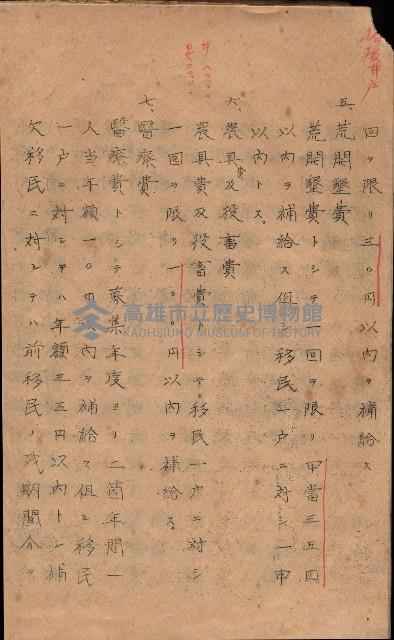 回ヲ限リ三〇円以內ヲ補給ス
五、荒開墾費
荒開墾費トシテ一回ヲ限リ甲當三五円
以內ヲ補給ス但シ移民一戶ニ対シ一甲
以內トス。
六、農具及役畜費
農具費及役畜費トシテ移民一戶ニ対シ
一回ヲ限リ一〇〇円以內ヲ補給ス。
七、醫療費
醫療費トシテ募集年度ヨリ二箇年間一
人当年額一〇円以內ヲ補給ス但シ移民
一戶ニ対シテハ年額三五円以內トシ補
欠移民ニ対シテハ前移民ノ残期間分ヲ
高雄市立歷史博物館
KAOHSIUNG MUSEUM OF HISTORY